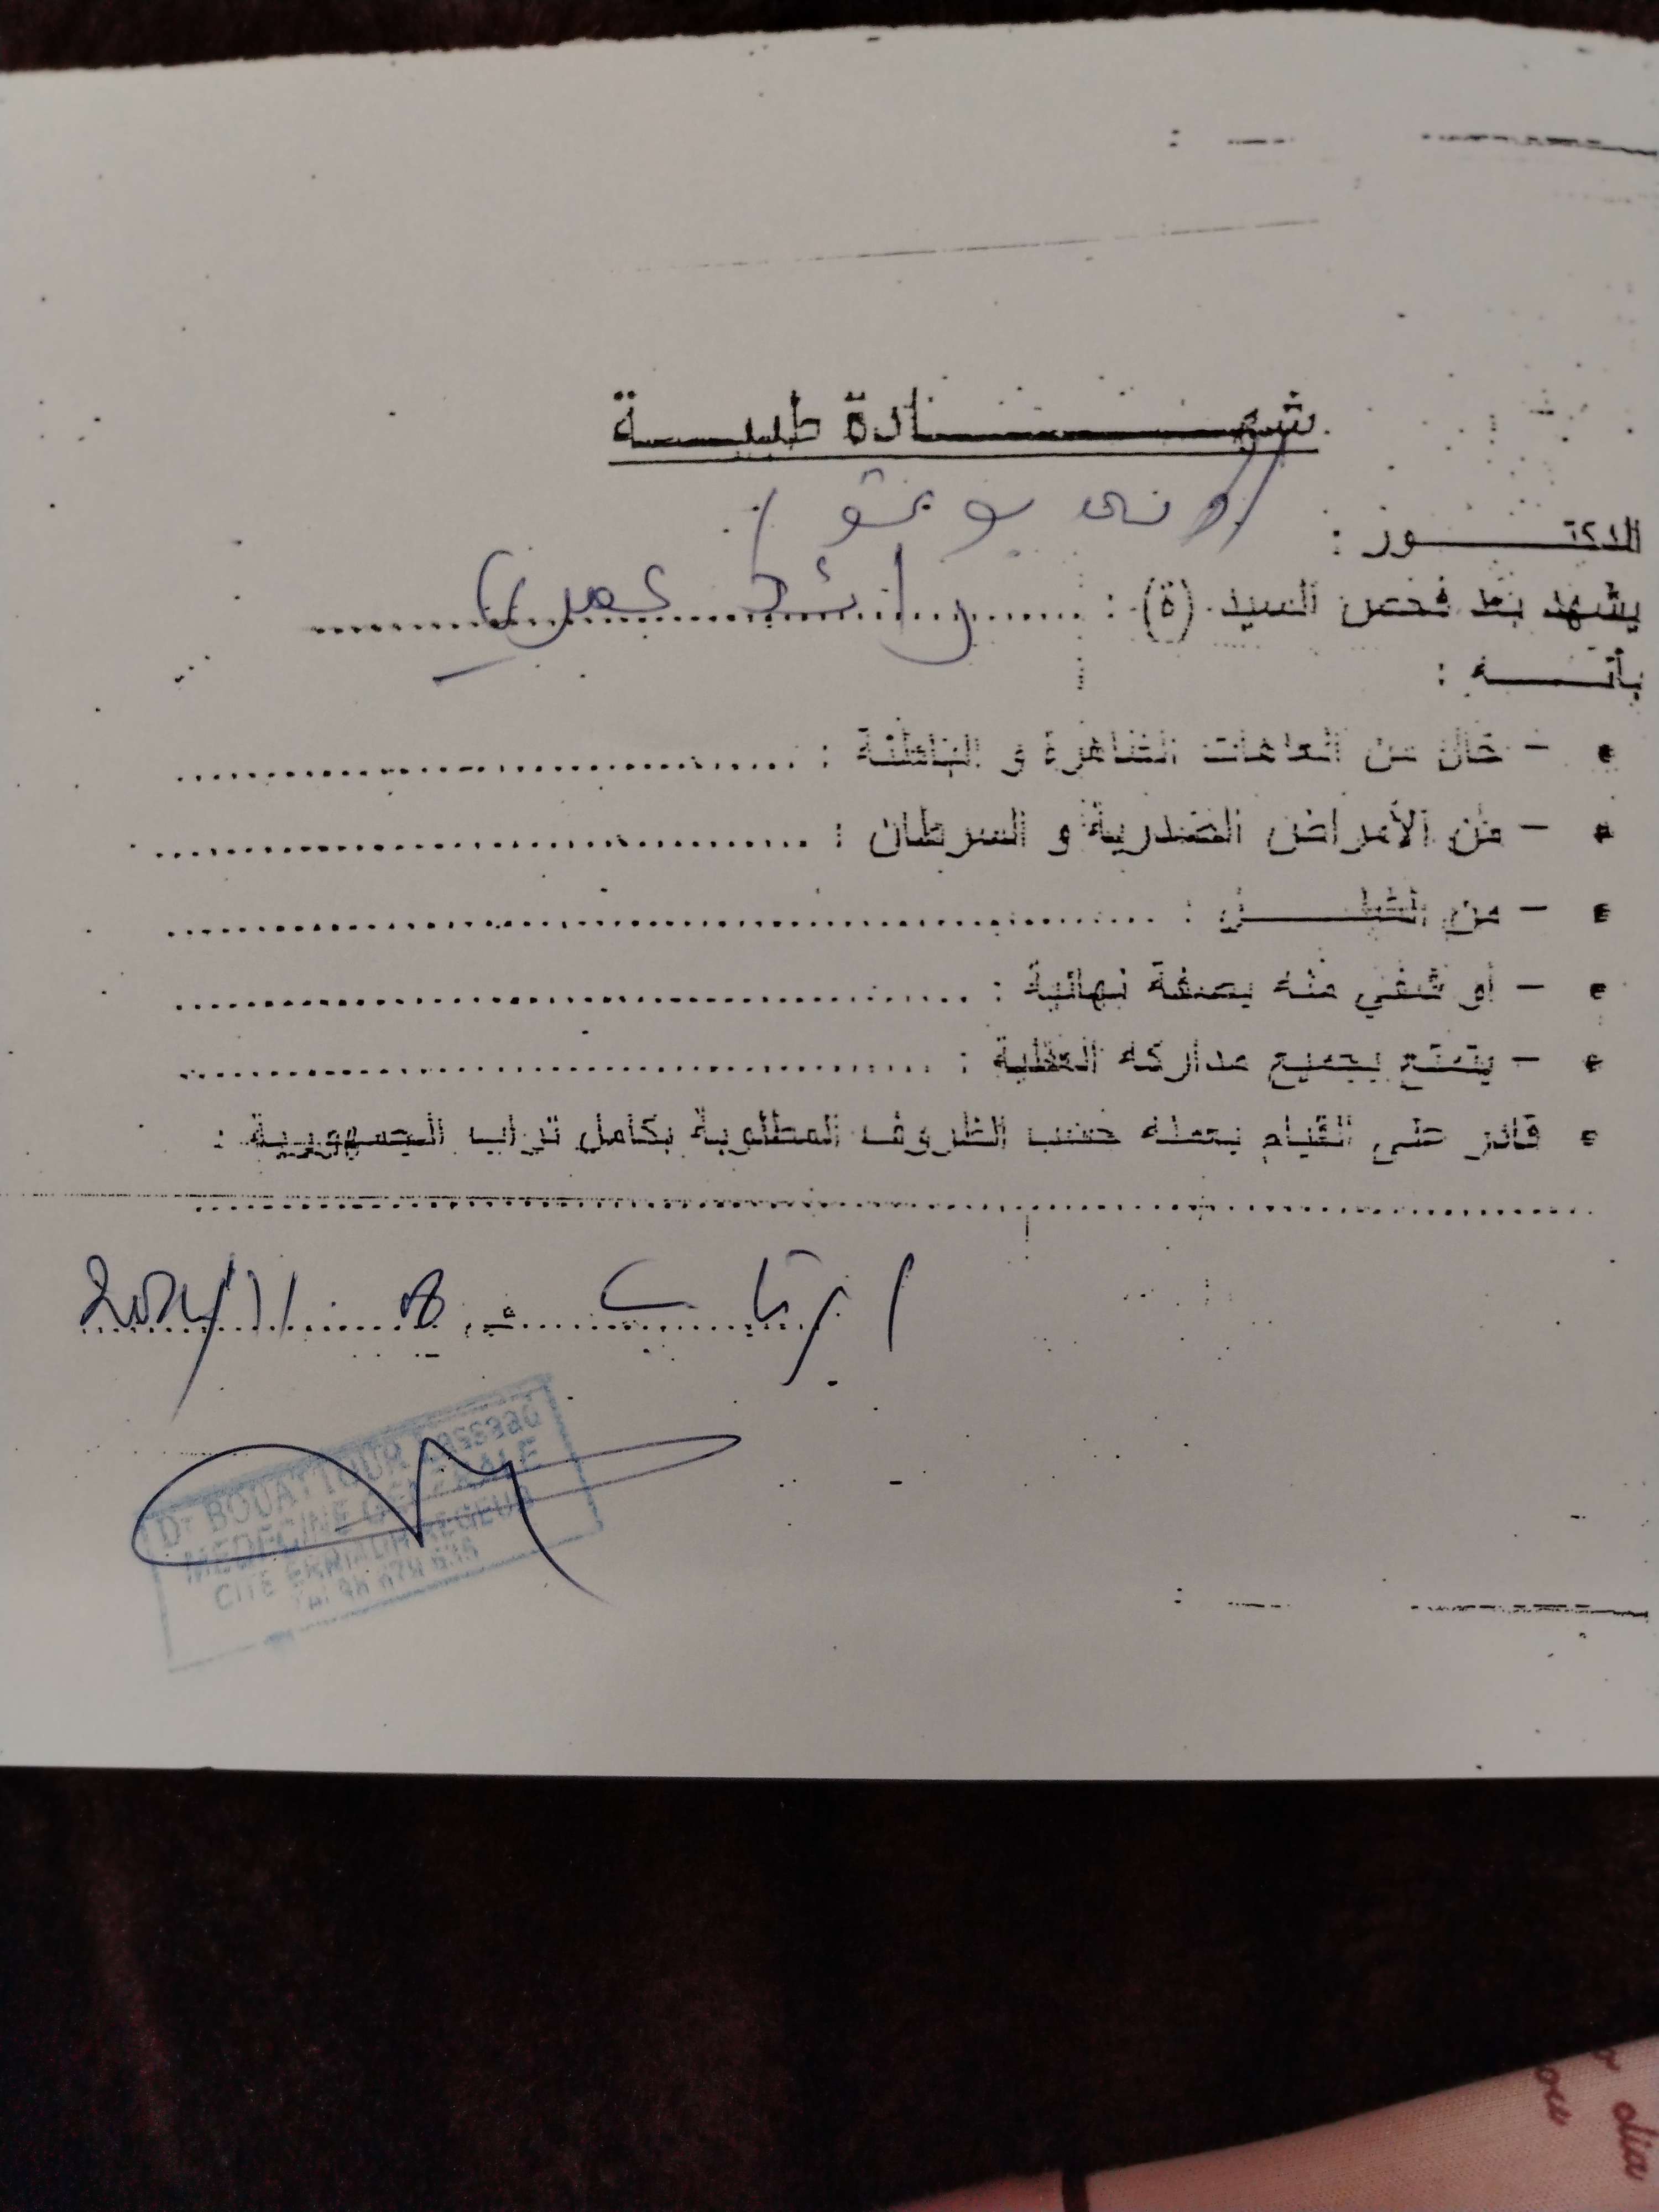 شهـــــادة طبيـــة
الدكتـــور :
يشهد بعد فحص السيد (ة) : راشد عمري
بأنـــه :
• – خال من العاهات الظاهرة و الباطنة :
• – من الأمراض الصدرية و السرطان :
• – من الشلــــل :
• – أو شفي منه بصفة نهائية :
• – يتمتع بجميع مداركه العقلية :
• قادر على القيام بعمله حسب الظروف المطلوبة بكامل تراب الجمهورية :
في 08
Dr BOUATTOUR
MEDECINE GENERALE
CITE ERRIADH REGUEB